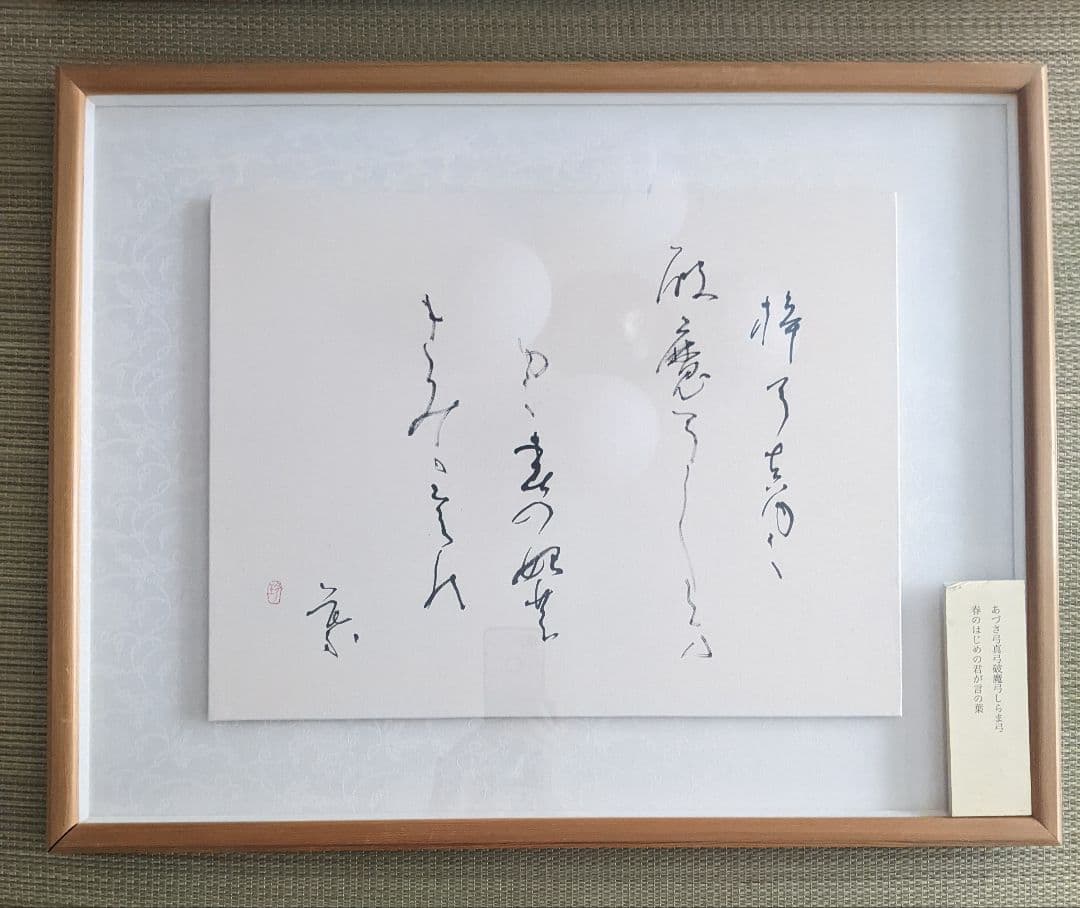 梓弓真ゆみ
破魔弓しらま
ゆみ春の
葉
あづさ弓真弓破魔弓しらま弓
春のはじめの君が言の葉